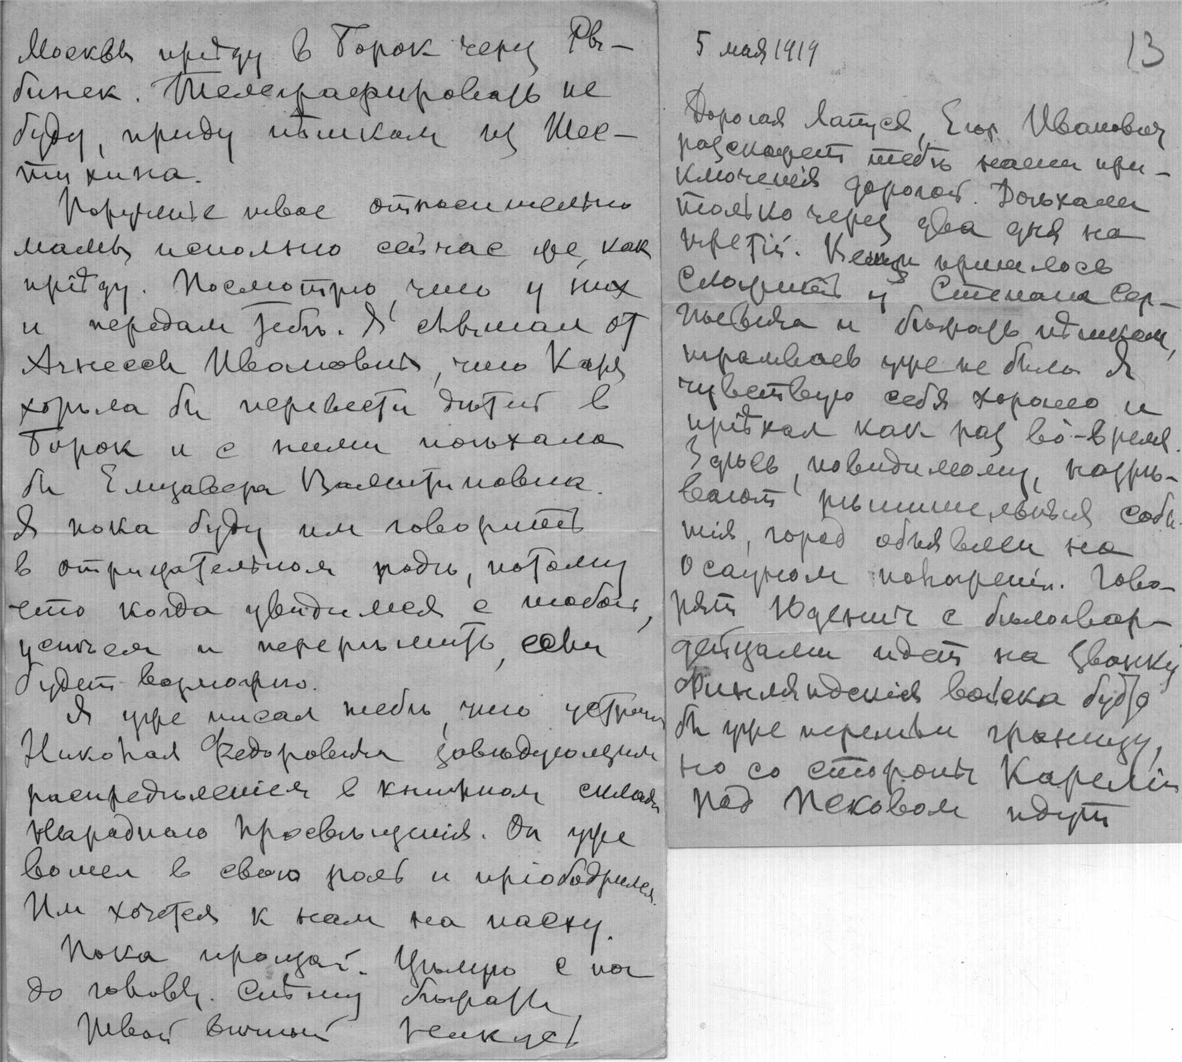 Москвы прiѣду в Борок через Ры-
бинск. Телеграфировать не
буду, приду пѣшком из Шес-
тихина.
Порученiе твое относительно
мамы исполню сейчас же, как
прiѣду. Посмотрю, что у них
и передам тебѣ. Я слышал от
Агнессы Ивановны, что Катя
хотѣла бы перевести дѣтей в
Борок и с ними поѣхала
бы Елизавета Валентиновна.
Я пока буду им говорить
в отрицательном родѣ, потому
что когда увидимся с тобой,
успѣем и перерѣшить, если
будет возможно.
Я уже писал тебѣ, что устроил
Николая Федоровича завѣдующим
распредѣленiем в книжном складѣ
Народнаго Просвѣщенiя. Он уже
вошел в свою роль и прiободрился.
Им хочется к нам на пасху.
Пока прощай. Цѣлую с ног
до головы. Спѣшу бѣжать
Твой вѣчный
5 мая 1919
13
Дорогая Ляпуся, Егор Иванович
разскажет тебѣ наши при-
ключенiя дорогой. Доѣхали
только через два дня на
третiй. Вещи пришлось
сложить у Степана Сер-
гѣевича и бѣжать пѣшком,
трамваев уже не было. Я
чувствую себя хорошо и
прiѣхал как раз во-время.
Здѣсь, повидимому, назрѣ-
вают рѣшительныя собы-
тiя, город объявлен на
осадном положенiи. Гово-
рят Юденич с бѣлогвар-
дейцами идет на Званку
Финляндскiя войска будто
бы уже перешли границу,
но со стороны Карелiи
Над Псковом идут